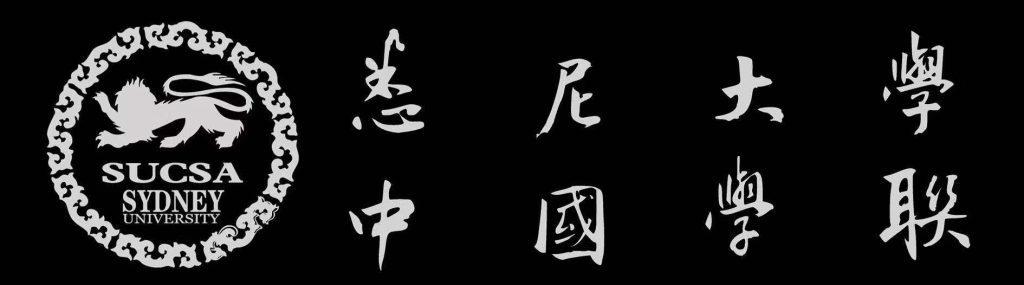 SUCSA
SYDNEY
UNIVERSITY
悉尼大學
中國學聯